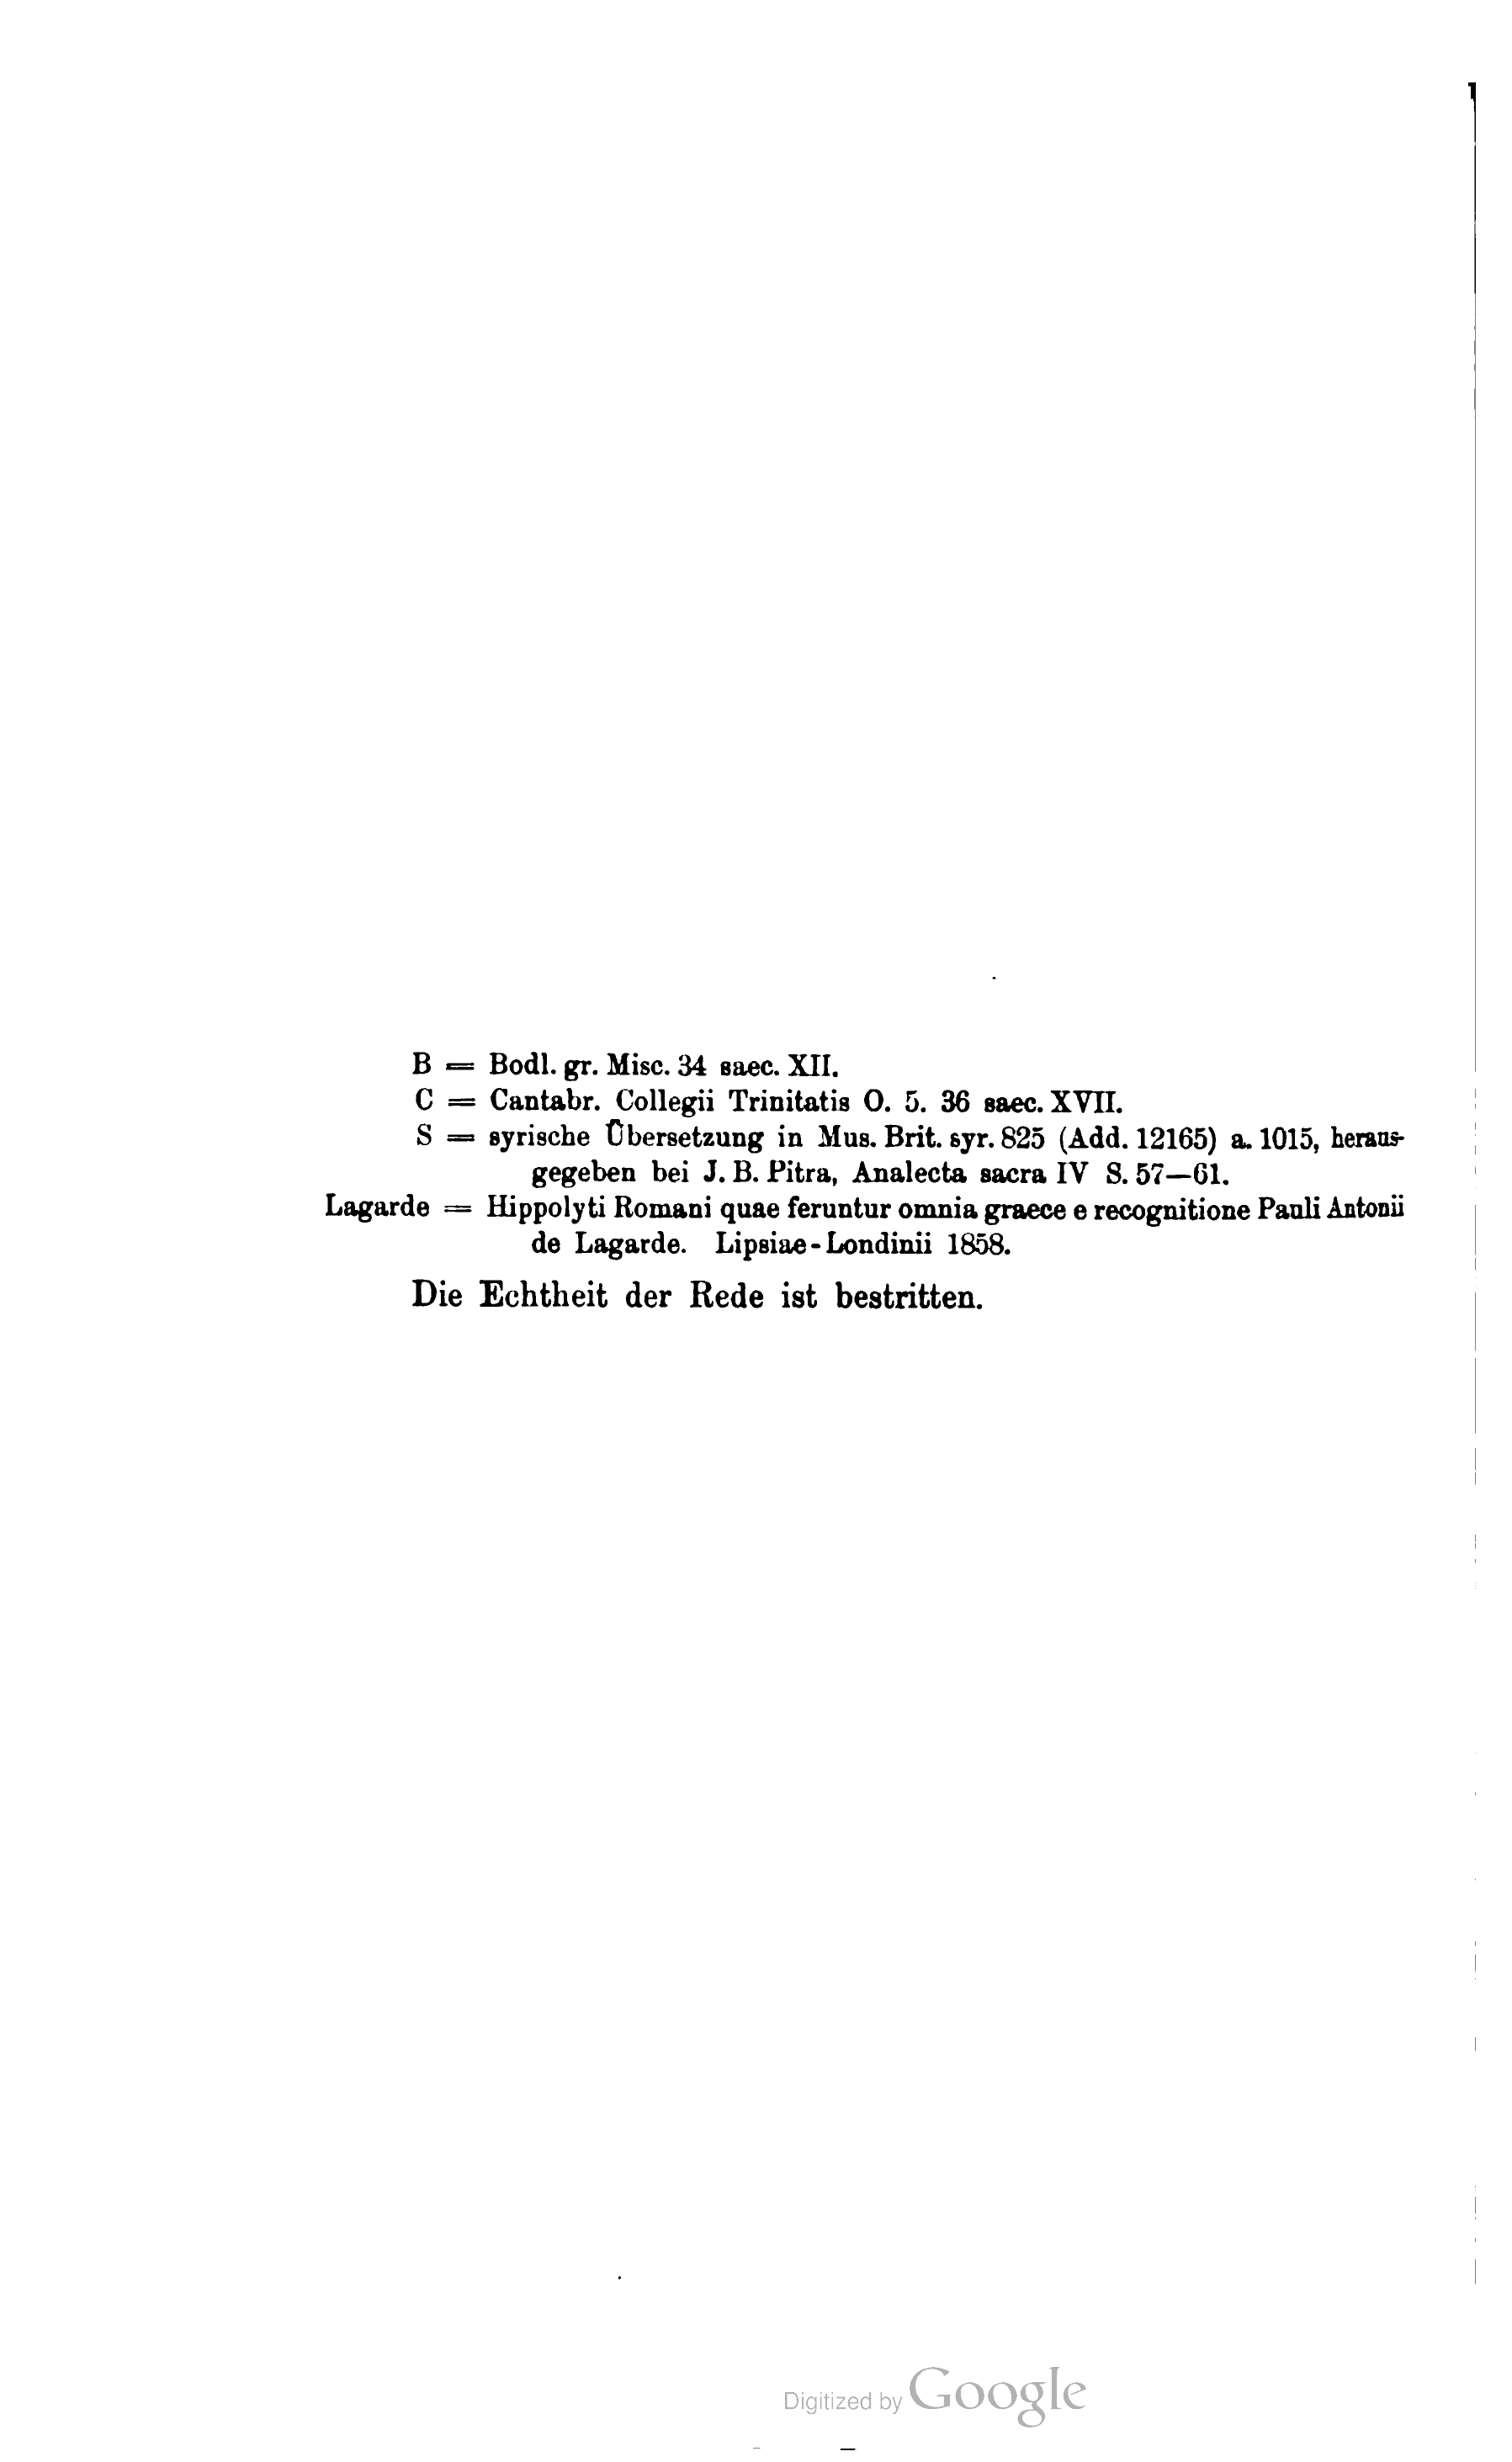 B = Bodl. gr. Misc. 34 saec. XII.
C = Cantabr. Collegii Trinitatis O. 5. 36 saec. XVII.
S = syrische Übersetzung in Mus. Brit. syr. 825 (Add. 12165) a. 1015, heraus-
gegeben bei J. B. Pitra, Analecta sacra IV S. 57—61.
Lagarde = Hippolyti Romani quae feruntur omnia graece e recognitione Pauli Antonii
de Lagarde. Lipsiae-Londinii 1858.
Die Echtheit der Rede ist bestritten.
Digitized by Google